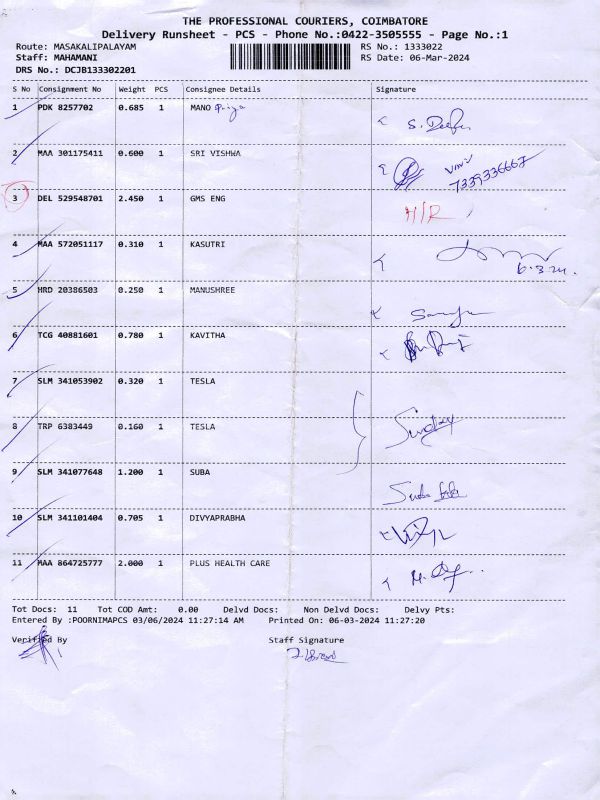 THE PROFESSIONAL COURIERS, COIMBATORE
Delivery Runsheet - PCS - Phone No.:0422-3505555 - Page No.:1
Route: MASAKALIPALAYAM RS No.: 1333022
Staff: MAHAMANI RS Date: 06-Mar-2024
DRS No.: DCJB133302201
S No Consignment No Weight PCS Consignee Details Signature
1 PDK 8257702 0.685 1 MANO Priya
2 MAA 301175411 0.600 1 SRI VISHWA
7339336667
3 DEL 529548701 2.450 1 GMS ENG H/R
4 MAA 572051117 0.310 1 KASUTRI
6.3.24.
5 HRD 20386503 0.250 1 MANUSHREE
6 TCG 40881601 0.780 1 KAVITHA
7 SLM 341053902 0.320 1 TESLA
8 TRP 6383449 0.160 1 TESLA
9 SLM 341077648 1.200 1 SUBA
10 SLM 341101404 0.705 1 DIVYAPRABHA
11 MAA 864725777 2.000 1 PLUS HEALTH CARE
Tot Docs: 11 Tot COD Amt: 0.00 Delvd Docs: Non Delvd Docs: Delvy Pts:
Entered By :POORNIMAPCS 03/06/2024 11:27:14 AM Printed On: 06-03-2024 11:27:20
Verified By Staff Signature